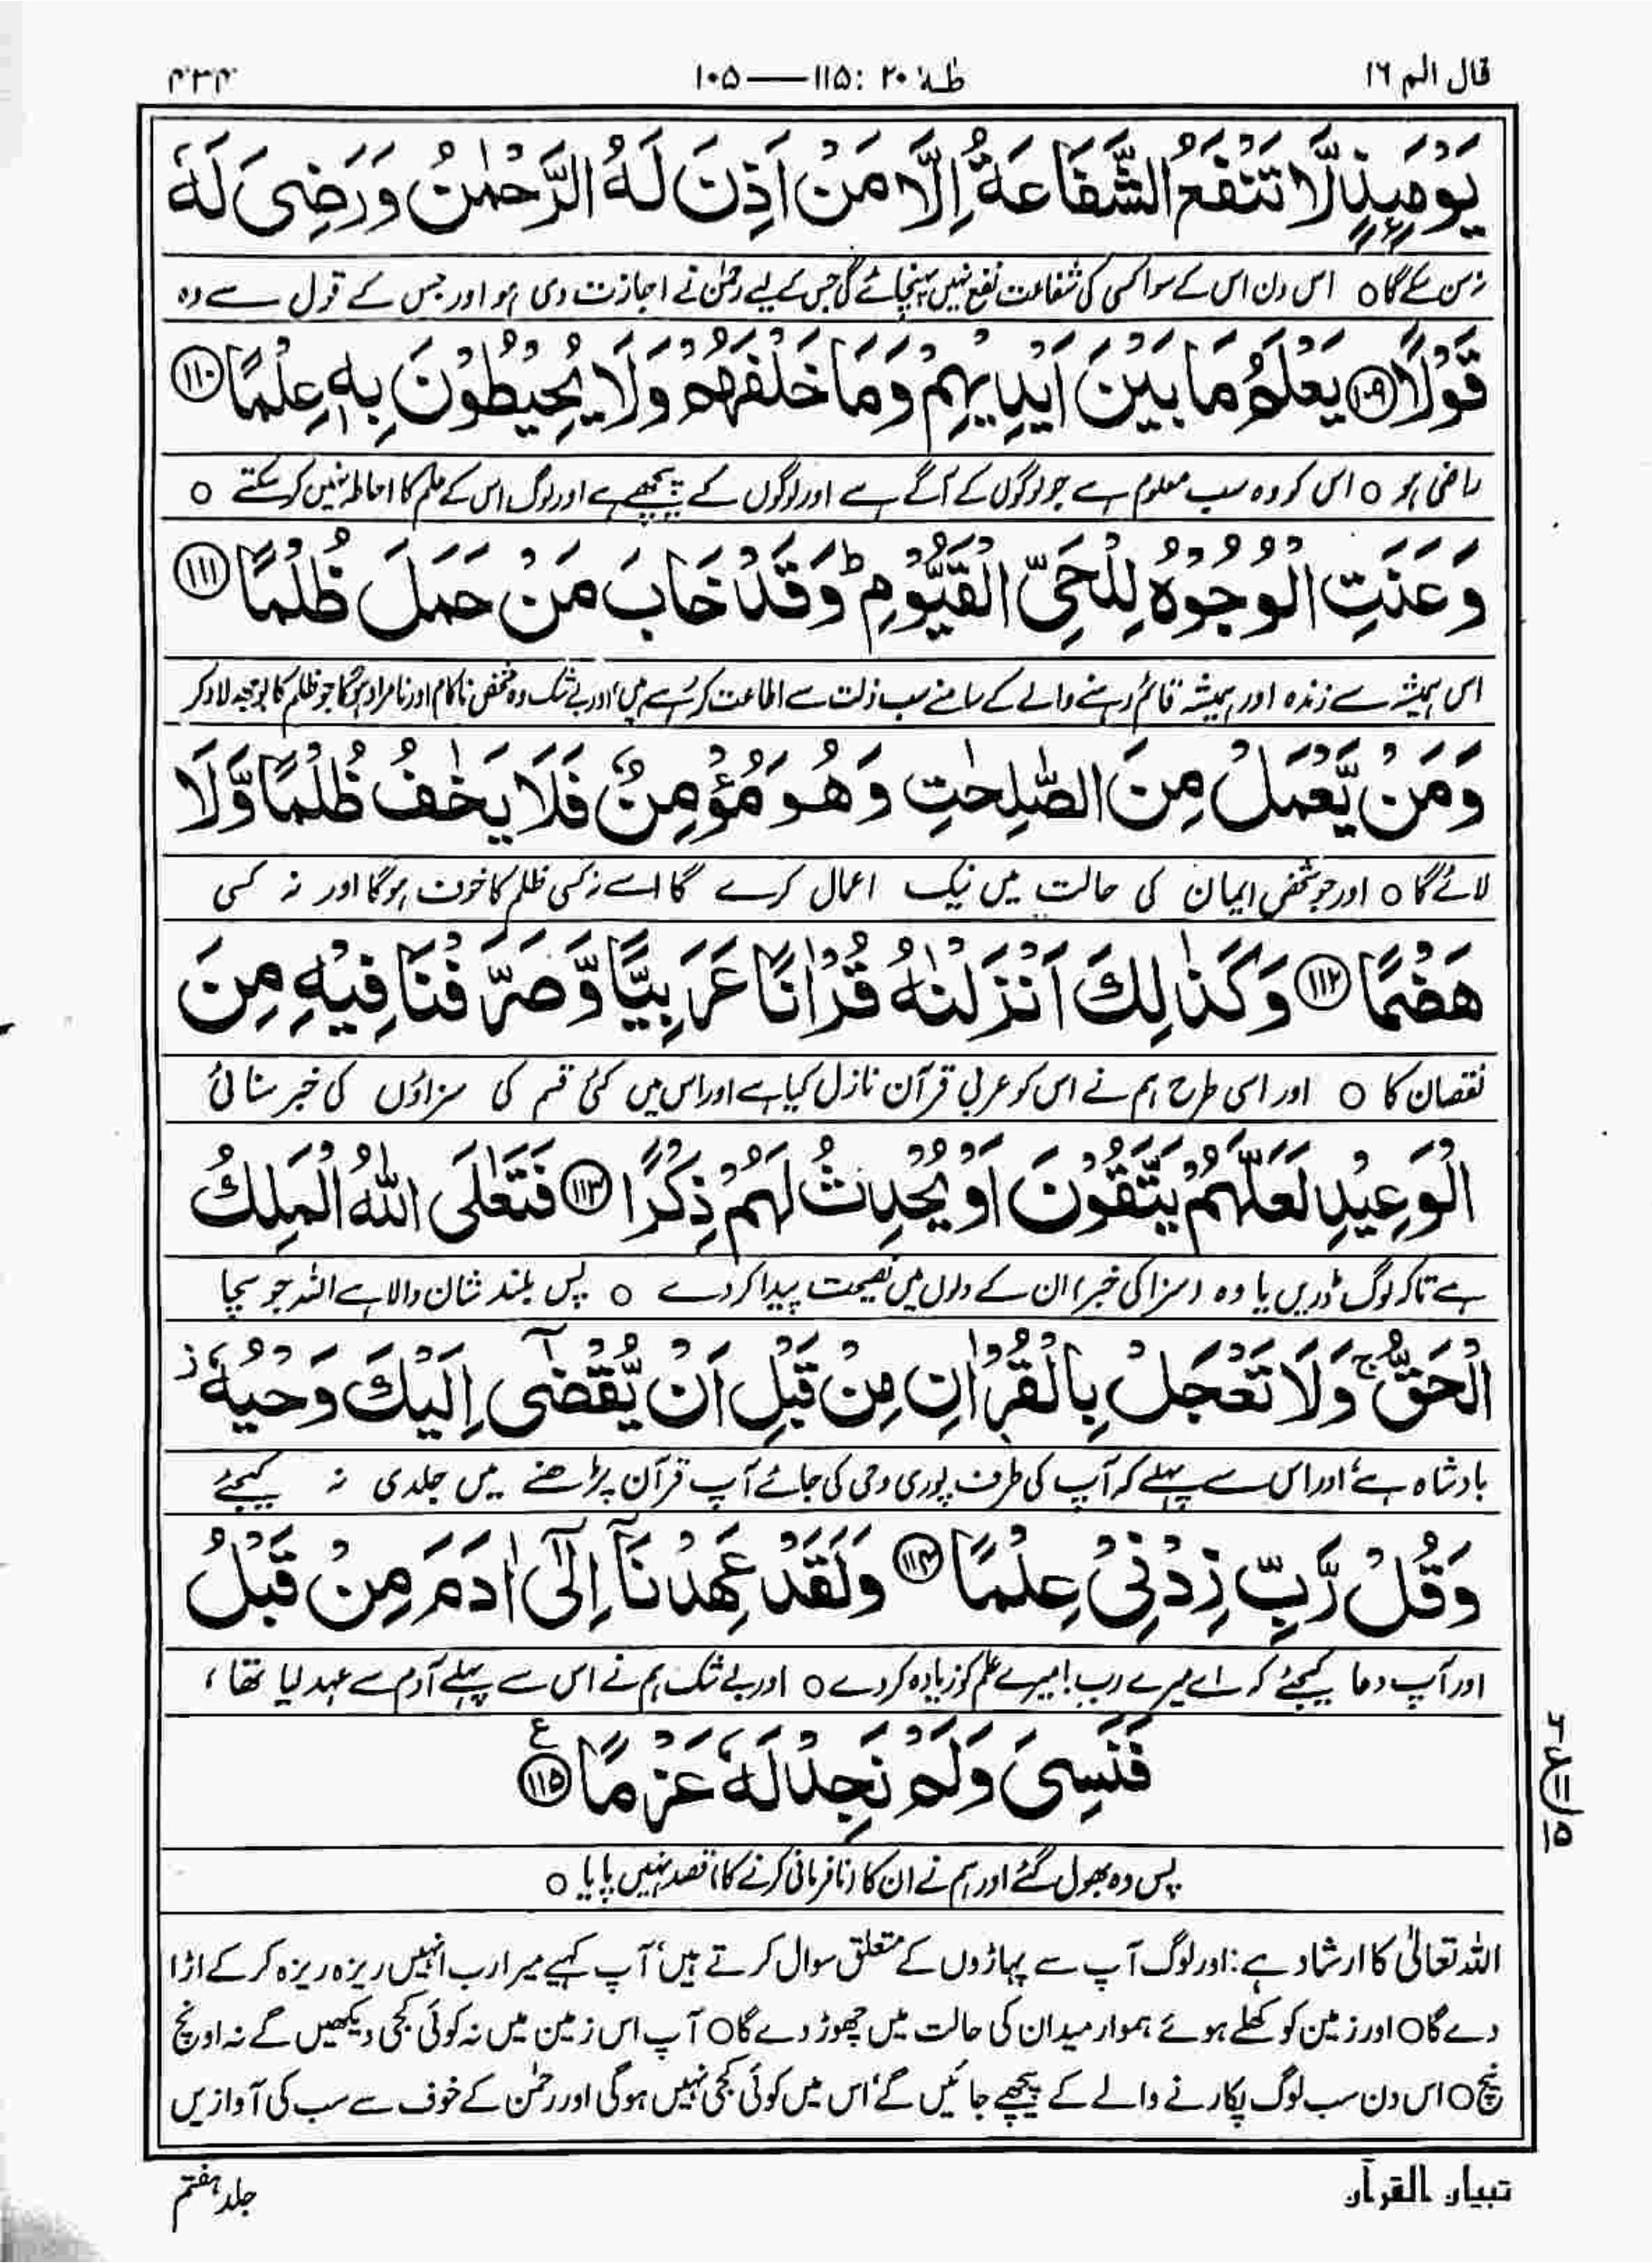 قال الم ۱۶
طٰهٰ ۲۰ : ۱۱۵ — ۱۰۵
۴۳۴
يَوْمَئِذٍ لَّا تَنْفَعُ الشَّفَاعَةُ اِلَّا مَنْ اَذِنَ لَهُ الرَّحْمٰنُ وَرَضِىَ لَهٗ
نہ سن سکے گا ○ اس دن اس کے سوا کسی کی شفاعت نفع نہیں پہنچائے گی جس کے لیے رحمٰن نے اجازت دی ہو اور جس کے قول سے وہ
قَوْلًا ﴿۱۰۹﴾ يَعْلَمُ مَا بَيْنَ اَيْدِيْهِمْ وَمَا خَلْفَهُمْ وَلَا يُحِيْطُوْنَ بِهٖ عِلْمًا ﴿۱۱۰﴾
راضی ہو ○ اس کو وہ سب معلوم ہے جو لوگوں کے آگے ہے اور لوگوں کے پیچھے ہے اور لوگ اس کے علم کا احاطہ نہیں کر سکتے ○
وَعَنَتِ الْوُجُوْهُ لِلْحَىِّ الْقَيُّوْمِ ؕ وَقَدْ خَابَ مَنْ حَمَلَ ظُلْمًا ﴿۱۱۱﴾
اس ہمیشہ سے زندہ اور ہمیشہ قائم رہنے والے کے سامنے سب ذلت سے اطاعت کر رہے ہیں، اور بے شک وہ شخص ناکام اور نامراد ہو گا جو ظلم کا بوجھ لاد کر
وَمَنْ يَّعْمَلْ مِنَ الصّٰلِحٰتِ وَهُوَ مُؤْمِنٌ فَلَا يَخٰفُ ظُلْمًا وَّلَا
لائے گا ○ اور جو شخص ایمان کی حالت میں نیک اعمال کرے گا اسے نہ کسی ظلم کا خوف ہو گا اور نہ کسی
هَضْمًا ﴿۱۱۲﴾ وَكَذٰلِكَ اَنْزَلْنٰهُ قُرْاٰنًا عَرَبِيًّا وَّصَرَّفْنَا فِيْهِ مِنَ
نقصان کا ○ اور اسی طرح ہم نے اس کو عربی قرآن نازل کیا ہے اور اس میں کئی قسم کی سزاؤں کی خبر سنائی
الْوَعِيْدِ لَعَلَّهُمْ يَتَّقُوْنَ اَوْ يُحْدِثُ لَهُمْ ذِكْرًا ﴿۱۱۳﴾ فَتَعٰلَى اللّٰهُ الْمَلِكُ
ہے تاکہ لوگ ڈریں یا وہ (سزا کی خبر) ان کے دلوں میں نصیحت پیدا کر دے ○ پس بلند شان والا ہے اللہ جو سچا
الْحَقُّ ۚ وَلَا تَعْجَلْ بِالْقُرْاٰنِ مِنْ قَبْلِ اَنْ يُّقْضٰٓى اِلَيْكَ وَحْيُهٗ ز
بادشاہ ہے، اور اس سے پہلے کہ آپ کی طرف پوری وحی کی جائے آپ قرآن پڑھنے میں جلدی نہ کیجئے
وَقُلْ رَّبِّ زِدْنِىْ عِلْمًا ﴿۱۱۴﴾ وَلَقَدْ عَهِدْنَاۤ اِلٰٓى اٰدَمَ مِنْ قَبْلُ
اور آپ دعا کیجئے کہ اے میرے رب! میرے علم کو زیادہ کر دے ○ اور بے شک ہم نے اس سے پہلے آدم سے عہد لیا تھا،
فَنَسِىَ وَلَمْ نَجِدْ لَهٗ عَزْمًا ﴿۱۱۵﴾ ع
پس وہ بھول گئے اور ہم نے ان کا (نافرمانی کرنے کا) قصد نہیں پایا ○
اللہ تعالیٰ کا ارشاد ہے: اور لوگ آپ سے پہاڑوں کے متعلق سوال کرتے ہیں، آپ کہیے میرا رب انہیں ریزہ ریزہ کر کے اڑا
دے گا○ اور زمین کو کھلے ہوئے ہموار میدان کی حالت میں چھوڑ دے گا○ آپ اس زمین میں نہ کوئی کجی دیکھیں گے نہ اونچ
نیچ○ اس دن سب لوگ پکارنے والے کے پیچھے جائیں گے، اس میں کوئی کجی نہیں ہوگی اور رحمٰن کے خوف سے سب کی آوازیں
تبیان القرآن
جلد ہفتم